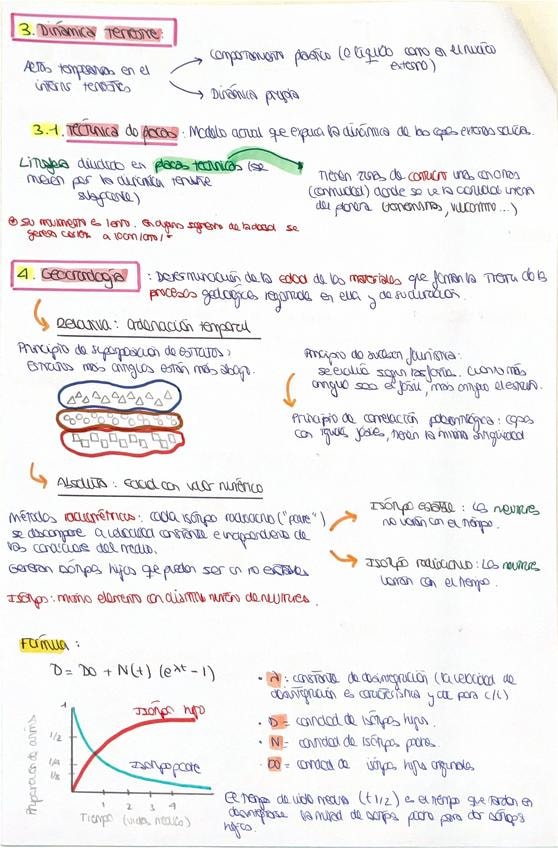 3. Dinámica terrestre:
Altas temperaturas en el interior terrestre
Comportamiento plástico (o líquido como en el núcleo externo)
Dinámica propia
3.1. Tectónica de placas: Modelo actual que explica la dinámica de las capas externas sólidas.
Litosfera dividida en placas tectónicas (se
mueven por la dinámica terrestre
subyacente)
Tienen zonas de contacto unas con otras
(continuidad) donde se ve la actividad interna
del planeta (terremotos, vulcanismo...)
Su movimiento es lento. En algunos segmentos de la dorsal se
genera corteza a 10cm/año/
4. Geocronología
: Determinación de la edad de los materiales que forman la Tierra de los
procesos geológicos registrados en ella y de su duración.
Relativa: ordenación temporal
Principio de superposición de estratos:
estratos más antiguos están más abajo.
Principio de sucesión faunística:
se evalúa según los fósiles. Cuanto más
antiguo sea el fósil, más antiguo el estrato.
Principio de correlación paleontológica: capas
con iguales fósiles, tienen la misma antigüedad
Absoluta: edad con valor numérico
Métodos radiométricos: cada isótopo radiactivo ("padre")
se descompone a velocidad constante e independiente de
las condiciones del medio.
Generan isótopos hijos que pueden ser o no estables
Isótopos: mismo elemento con distinto número de neutrones.
Isótopo estable: los neutrones
no varían con el tiempo.
Isótopo radiactivo: Los neutrones
varían con el tiempo.
Fórmula:
D = D0 + N(t) (e^λt - 1)
· λ: constante de desintegración (la velocidad de
desintegración es característica y cte para c/i)
· D = cantidad de isótopos hijos.
· N = cantidad de isótopos padres.
· D0 = cantidad de isótopos hijos originales
Isótopo hijo
Isótopo padre
1
1/2
1/4
1/8
1 2 3 4
Tiempo (vidas medias)
El tiempo de vida media (t1/2) es el tiempo que tardan en
desintegrarse la mitad de isótopos padre para dar isótopos
hijos.